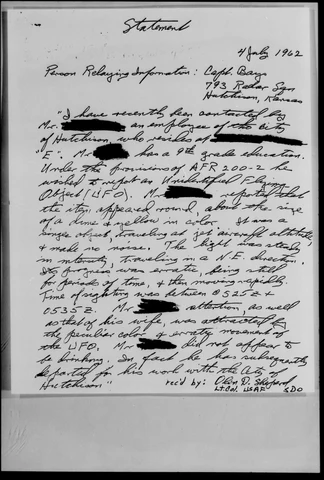 Statement
4 July 1962
Person Relaying Information: Capt. Bays
793 Radar Sqn
Hutchison, Kansas
"I have recently been contacted by
Mr. an employee of the City
of Hutchison, who resides at
"E". Mr. has a 9th grade education.
Under the provisions of AFR 200-2 he
wished to report an Unidentified Flying
Object (UFO). Mr. reports that
the item appeared round, about the size
of a dime & yellow in color. It was a
single object, traveling at jet aircraft altitude,
& made no noise. The light was steady
in intensity, traveling in a N.E. direction.
Its progress was erratic, being still
for periods of time, & then moving rapidly.
Time of sighting was between 0525Z &
0535Z. Mr. attention, as well
as that of his wife, was attracted by
the peculiar color & erratic movement of
the UFO. Mr did not appear to
be drinking. In fact he has subsequently
departed for his work with the City of
Hutchison"
rec'd by: Olen D. Shepard
Lt. Col. USAF SDO